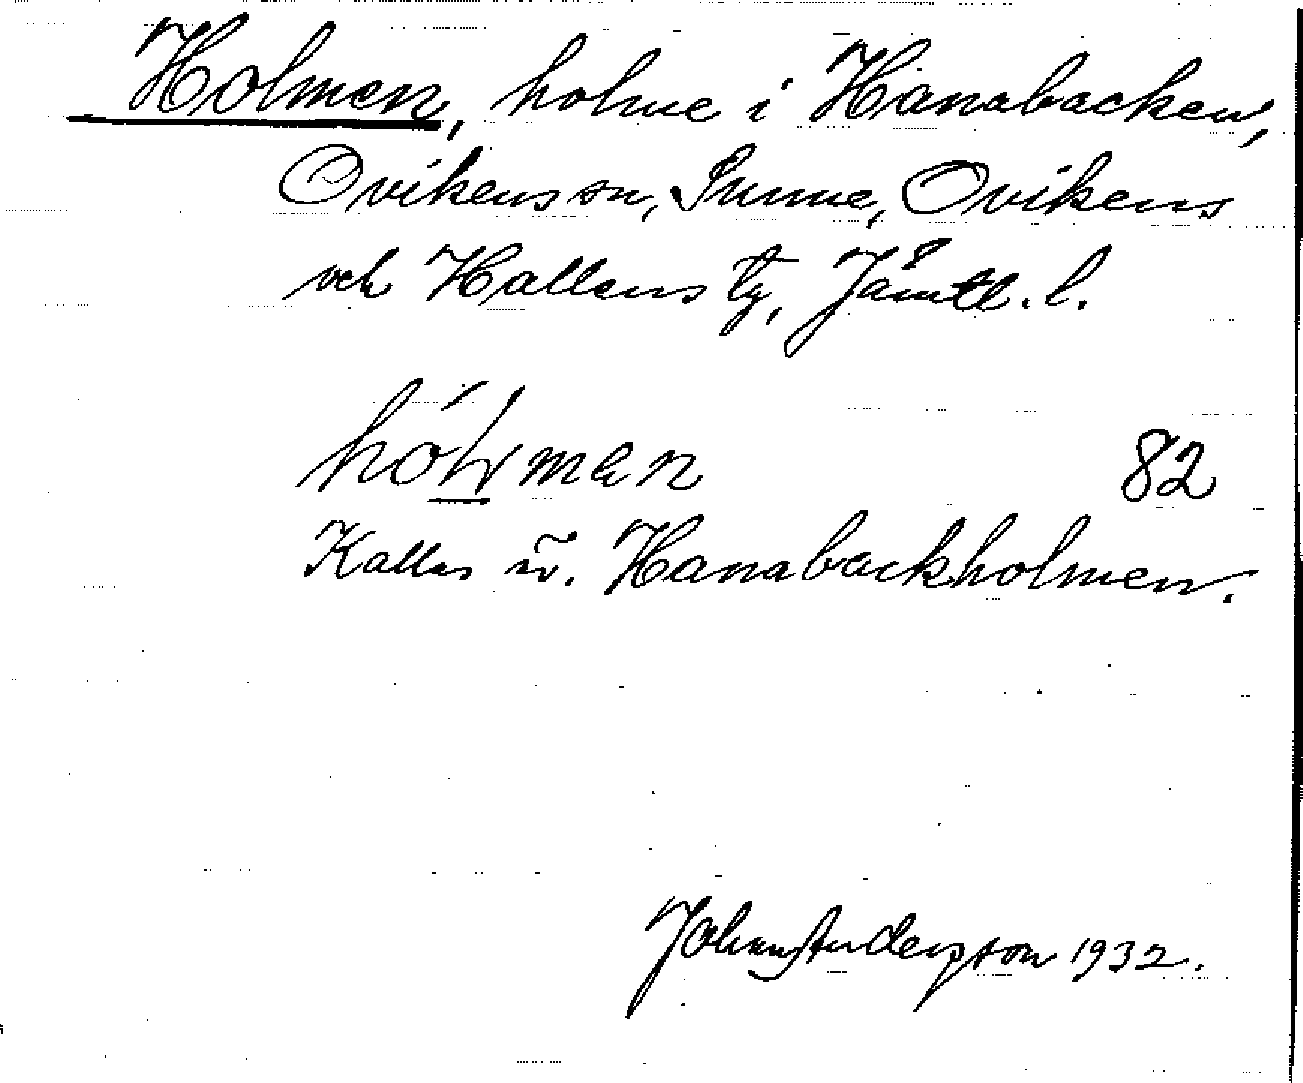 Holmen, holme i Hanabacken,
Ovikens sn, Sunne, Ovikens
och Hallens tg, Jämtl. l.
82
Kallas äv. Hanabackholmen.
Johan Anderson 1932.